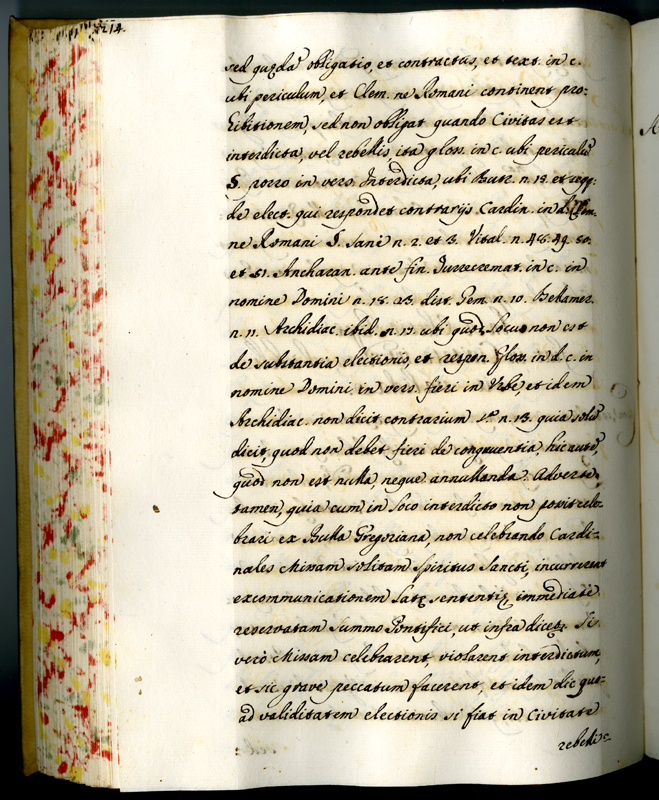 214.
sed quędā obligatio, et contractus, et text. in c.
ubi periculum, et Clem. ne Romani continent pro:
hibitionem, sed non obligat quando Civitas est
interdicta, vel rebellis, ita gloss. in c. ubi periculū
§. porro in vers. Interdicta, ubi Butr. n. 15. et
de elect. qui respondet contrarijs Cardin. in d. Clem.
ne Romani §. sani n. 2. et 3. Vital. n. 48. 49. 50.
et 51. Ancharan. ante fin. Turrecremat. in c. in
nomine Domini n. 18. 23. dist. Gem. n. 10. Bellamer.
n. 11. Archidiac. ibid. n. 13. ubi quod Locus non est
de substantia electionis, et respon. gloss. in d. c. in
nomine Domini in vers. fieri in Urbe, et idem
Archidiac. non dicit contrarium sª n. 13. quia solū
dicit, quod non debet fieri de congruentia, hic autē,
quod non est nulla, neque annullanda. Adverte
tamen, quia cum in Loco interdicto non possit cele-
brari ex Bulla Gregoriana, non celebrando Cardi-
nales Missam solitam Spiritus Sancti, incurrerent
excommunicationem latę sententię immediatè
reservatam Summo Pontifici, ut infra dicetr. Si
verò Missam celebrarent, violarent interdictum,
et sic grave peccatum facerent, et idem dic quo-
ad validitatem electionis si fiat in Civitate
rebelli